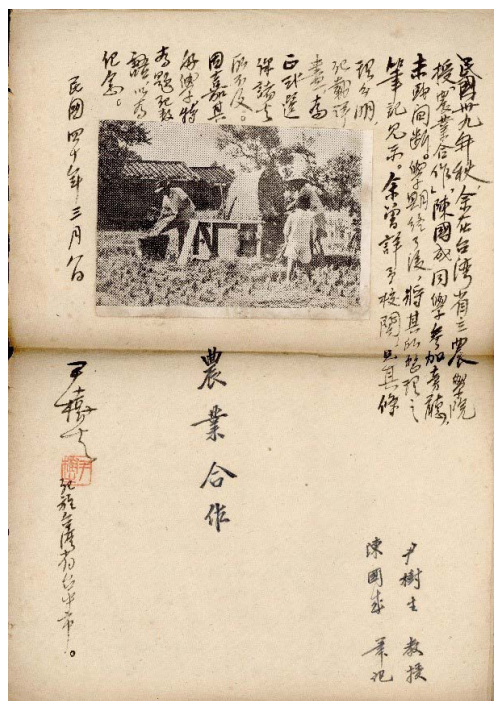 民國卅九年秋,余在台湾省立農學院
授「農業合作」,陳國成同學参加旁聽,
未际间断。學期終了後,將其所整理之
筆記見示。余曾詳予校閱,見其條
理分明,
記載詳
盡,為
正式選
課諸生
所不及。
因嘉其
好學,特
為題記数
語,以為
紀念。
民國四十年三月八日
尹樹生
記於台湾省台中市。
農業合作
尹樹生 教授
陳國成 筆記